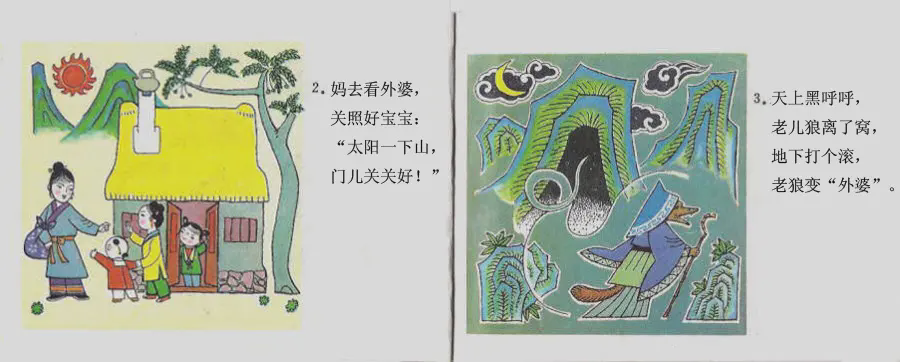 2. 妈去看外婆，
关照好宝宝：
“太阳一下山，
门儿关关好！”
3. 天上黑呼呼，
老儿狼离了窝，
地下打个滚，
老狼变“外婆”。